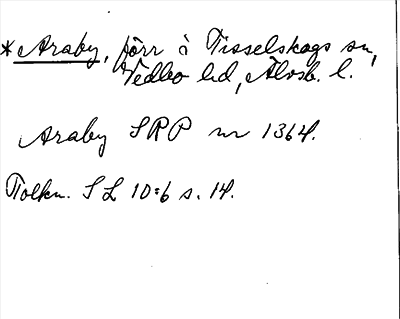 *Araby, förr i Tisselskogs sn,
Vedbo hd, Älvsb. l.
Araby SRP nr 1364.
Tolkn. SL 10:6 s. 14.